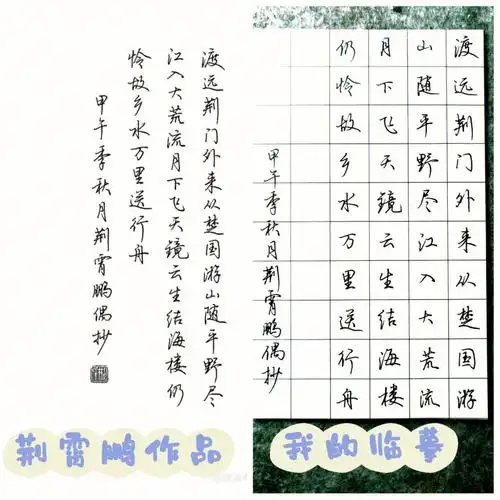 渡远荆门外来从楚国游山随平野尽
江入大荒流月下飞天镜云生结海楼仍
怜故乡水万里送行舟
甲午季秋月荆霄鹏偶抄
荆霄鹏作品
渡远荆门外来从楚国游
山随平野尽江入大荒流
月下飞天镜云生结海楼
仍怜故乡水万里送行舟
甲午季秋月荆霄鹏偶抄
我的临摹